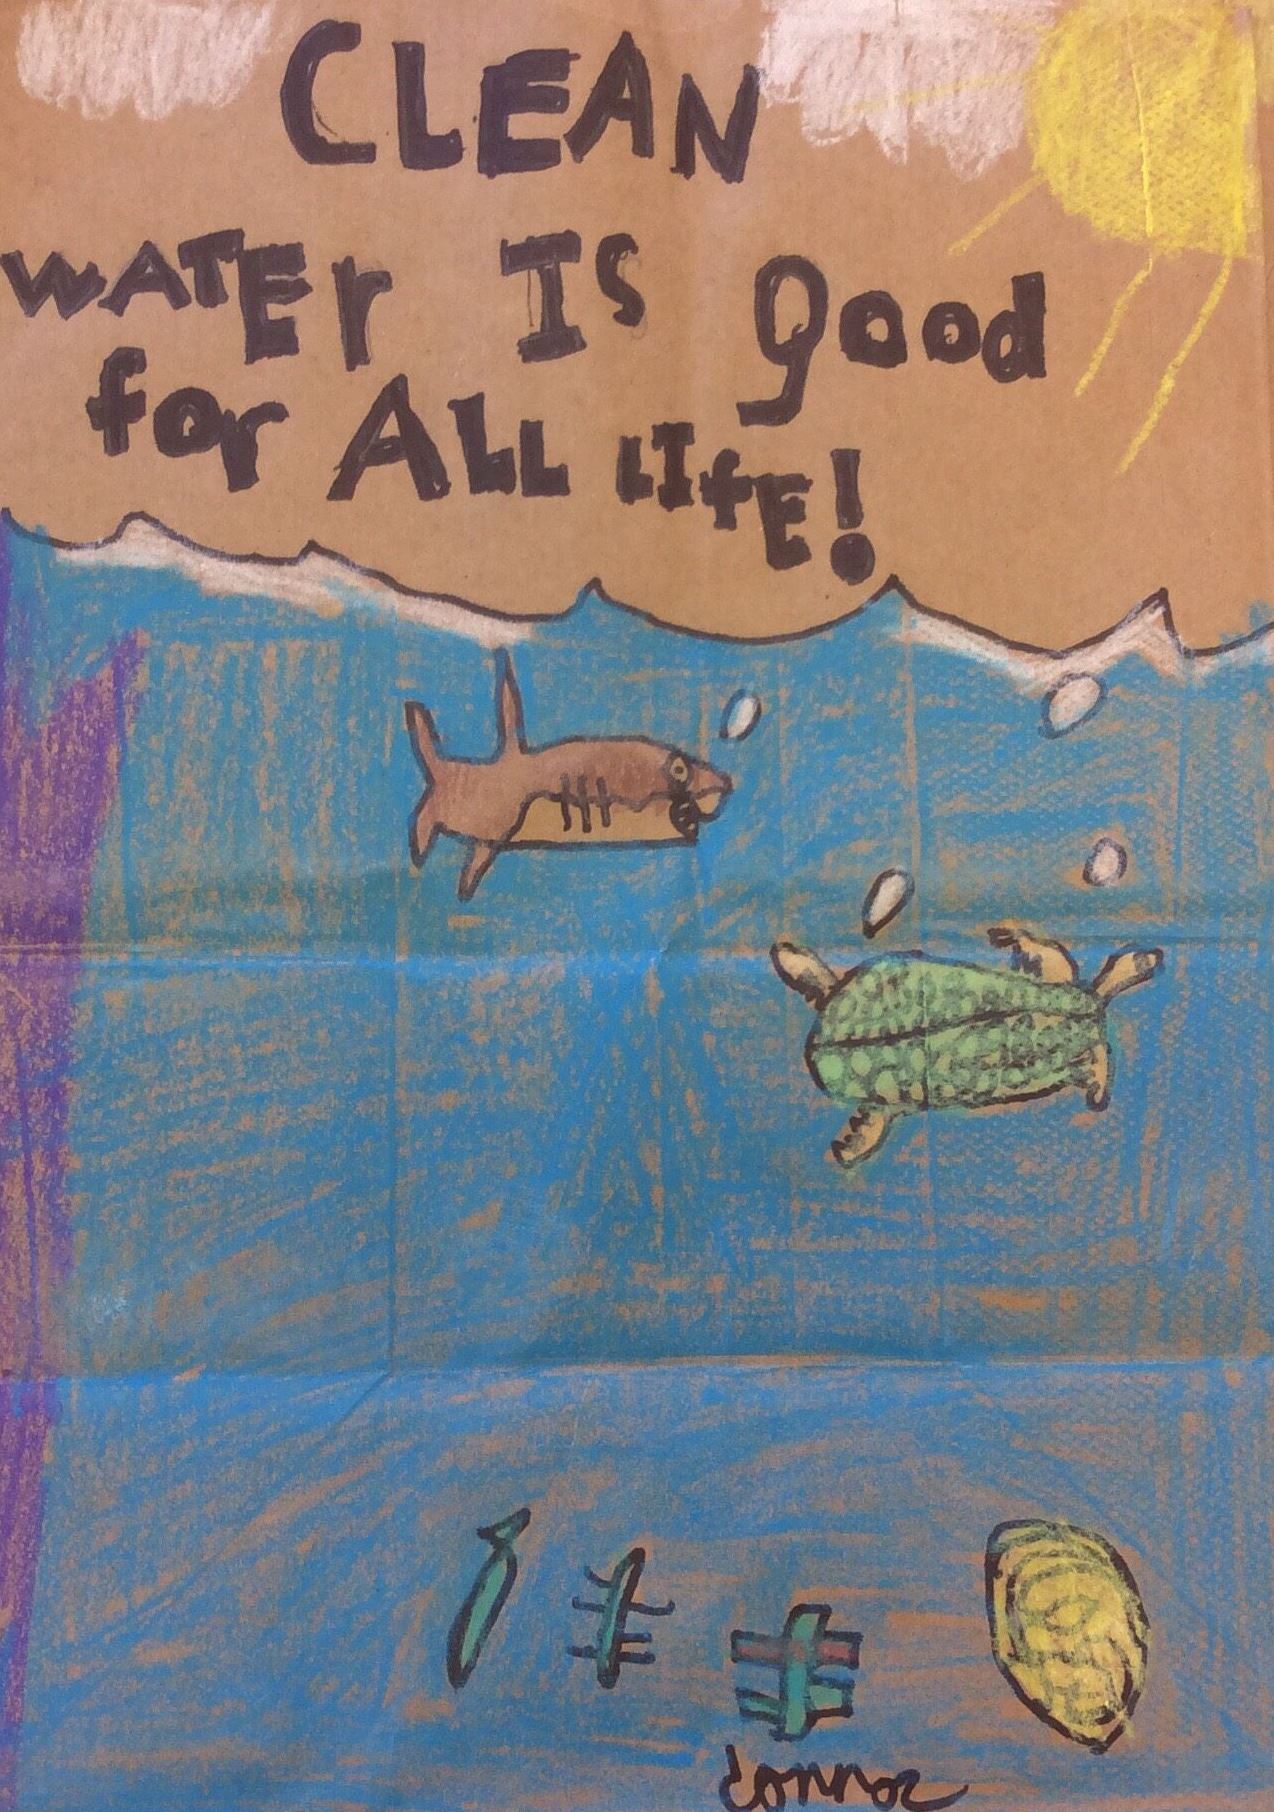 CLEAN
WATEr IS good
for ALL LIfE!
connor